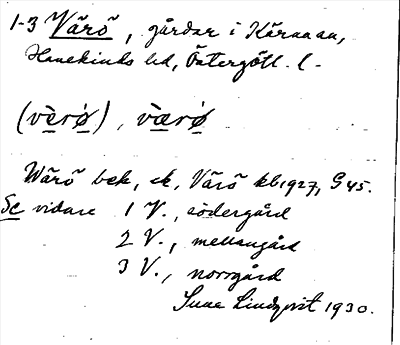 1-3 Värö, gårdar i Kärna sn,
Hanekinds hd, Östergötl. l.
(vè̱rǿ̱), væ̱̀rǿ̱
Wärö bek, ek, Värö kb 1927, G 45.
Se vidare 1 V., södergård
2 V., mellangård
3 V., norrgård
Sune Lindqvist 1930.